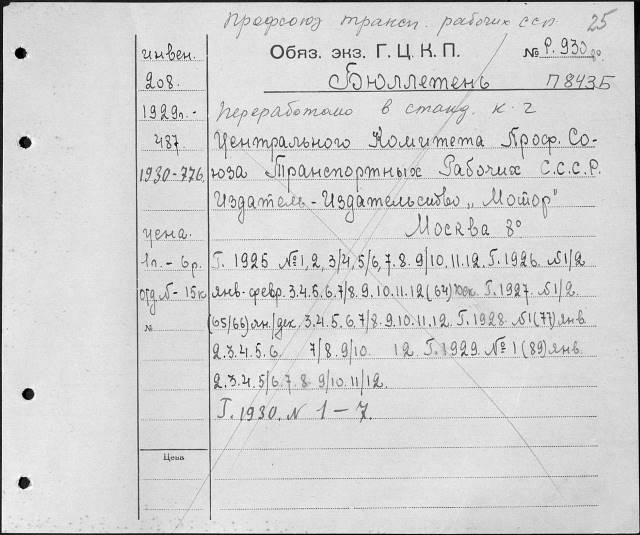 Профсоюз трансп. рабочих ссп 25
инвен. Обяз. экз. Г. Ц. К. П. № Р. 930
208. Бюллетень П 843Б
1929г.- Переработано в станд. к-ч
487. Центрального Комитета Проф. Со-
1930-776. юза Транспортных Рабочих С.С.С.Р.
Издатель-Издательство „Мотор"
цена. Москва 8°
1г. - 6р. Г. 1925 №1,2,3/4,5/6,7.8.9/10.11.12. Г.1926. №1/2
отд.№ - 15к янв-февр. 3.4.5.6.7/8.9.10.11.12(64) Г.1927. №1/2
№ (65/66) ян./дек. 3.4.5.6.7/8.9.10.11.12. Г.1928. №1(77) янв
2.3.4.5.6. 7/8.9/10. 12. Г.1929. №1(89) янв
2.3.4.5/6.7.8.9/10.11/12.
Г. 1930. № 1-7.
Цена